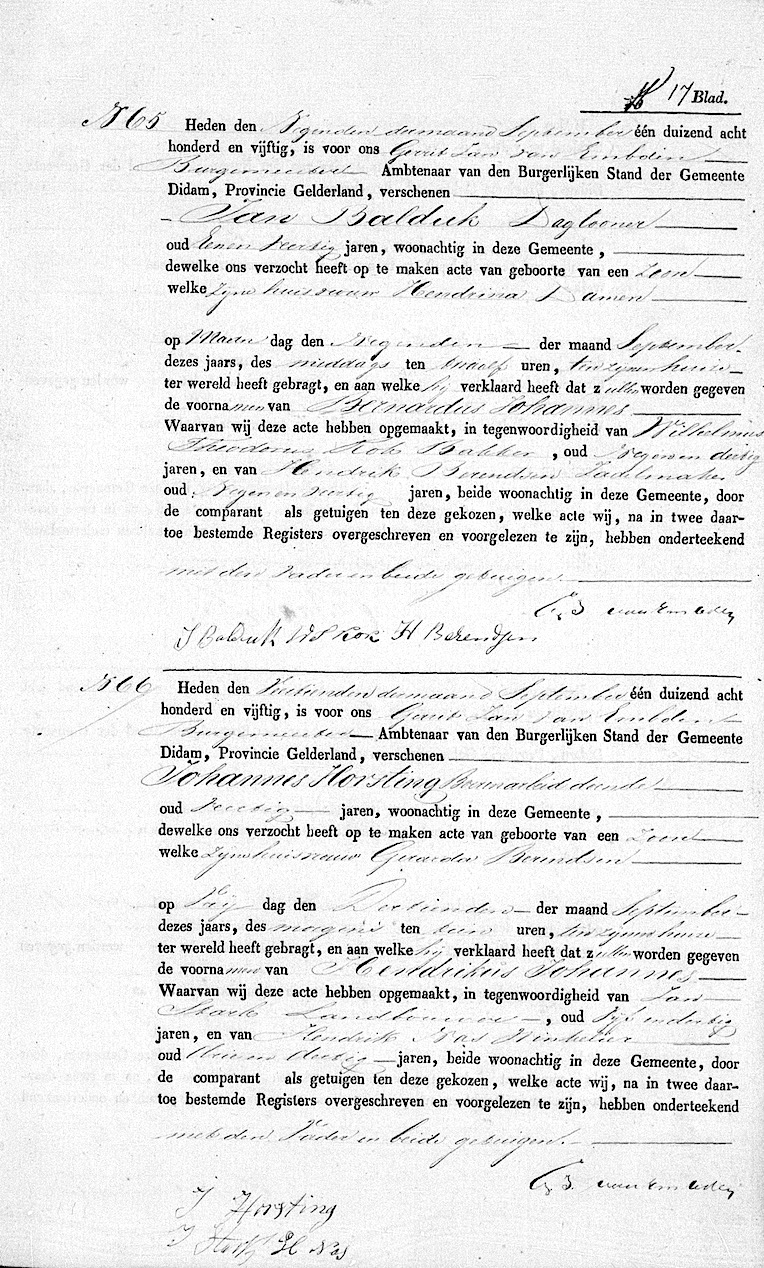 17 Blad.
N 65 Heden den Negenden der maand September één duizend acht
honderd en vijftig, is voor ons Gerrit Jan van Embden
Burgemeester Ambtenaar van den Burgerlijken Stand der Gemeente
Didam, Provincie Gelderland, verschenen
Jan Balduk Daglooner
oud Eenen veertig jaren, woonachtig in deze Gemeente,
dewelke ons verzocht heeft op te maken acte van geboorte van een Zoon
welke zijne huisvrouw Hendrina Damen
op Maan dag den Negenden der maand September
dezes jaars, des middags ten twaalf uren, ten zijnen huize
ter wereld heeft gebragt, en aan welke hij verklaard heeft dat zullen worden gegeven
de voornamen van Bernardus Johannes
Waarvan wij deze acte hebben opgemaakt, in tegenwoordigheid van Wilhelmus
Theodorus Kok Bakker, oud Negen en dertig
jaren, en van Hendrik Berendsen Zadelmaker
oud Negen en veertig jaren, beide woonachtig in deze Gemeente, door
de comparant als getuigen ten deze gekozen, welke acte wij, na in twee daar-
toe bestemde Registers overgeschreven en voorgelezen te zijn, hebben onderteekend
met den Vader en beide getuigen.
G J van Embden
J Balduk W T Kok H Berendsen
N 66 Heden den Veertienden der maand September één duizend acht
honderd en vijftig, is voor ons Gerrit Jan van Embden
Burgemeester Ambtenaar van den Burgerlijken Stand der Gemeente
Didam, Provincie Gelderland, verschenen
Johannes Horsting Boerenarbeid doende
oud Veertig jaren, woonachtig in deze Gemeente,
dewelke ons verzocht heeft op te maken acte van geboorte van een Zoon
welke zijne huisvrouw Geerda Berendsen
op Vrij dag den Dertienden der maand September
dezes jaars, des morgens ten tien uren, ten zijnen huize
ter wereld heeft gebragt, en aan welke hij verklaard heeft dat zullen worden gegeven
de voornamen van Hendrikus Johannes
Waarvan wij deze acte hebben opgemaakt, in tegenwoordigheid van Jan
Landbouwer, oud Vijf en dertig
jaren, en van Hendrik Nas Winkelier
oud Drie en dertig jaren, beide woonachtig in deze Gemeente, door
de comparant als getuigen ten deze gekozen, welke acte wij, na in twee daar-
toe bestemde Registers overgeschreven en voorgelezen te zijn, hebben onderteekend
met den Vader en beide getuigen.
G J. van Embden
J Horsting
J H Nas